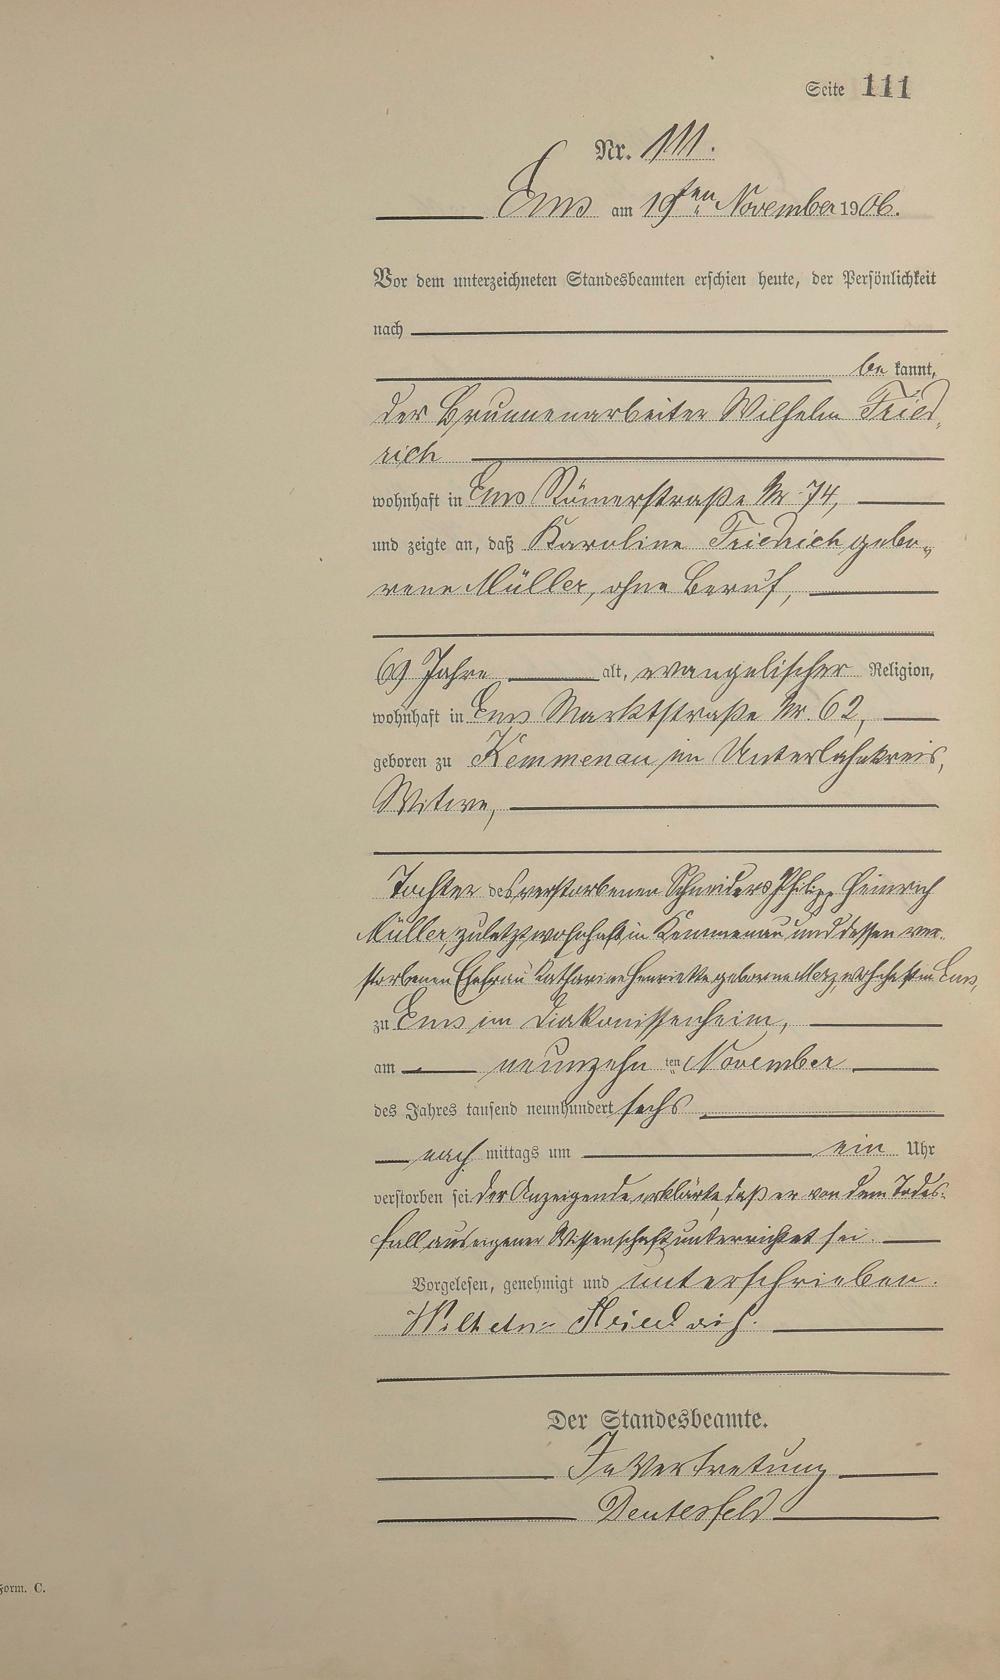 Seite 111
Nr. 111.
Ems am 19ten November 1906.
Vor dem unterzeichneten Standesbeamten erschien heute, der Persönlichkeit
nach
be kannt,
der Brunnenarbeiter Wilhelm Fried-
rich
wohnhaft in Ems Römerstraße Nr. 74,
und zeigte an, daß Karoline Friedrich gebo-
rene Müller, ohne Beruf,
69 Jahre alt, evangelischer Religion,
wohnhaft in Ems Marktstraße Nr. 62,
geboren zu Kemmenau im Unterlahnkreis,
Witwe,
Tochter des verstorbenen Schneiders Philipp Heinrich
Müller, zuletzt wohnhaft in Kemmenau und dessen ver-
storbenen Ehefrau Katharine Henriette geborne Merz, wohnhaft in Ems,
zu Ems im Diakonissenheim,
am neunzehn ten November
des Jahres tausend neunhundert sechs
nach mittags um ein Uhr
verstorben sei. Der Anzeigende erklärte, daß er von dem Todes-
fall aus eigener Wissenschaft unterrichtet sei.
Vorgelesen, genehmigt und unterschrieben.
Wilhelm Friedrich.
Der Standesbeamte.
In Vertretung
Deutesfeld
Form. C.